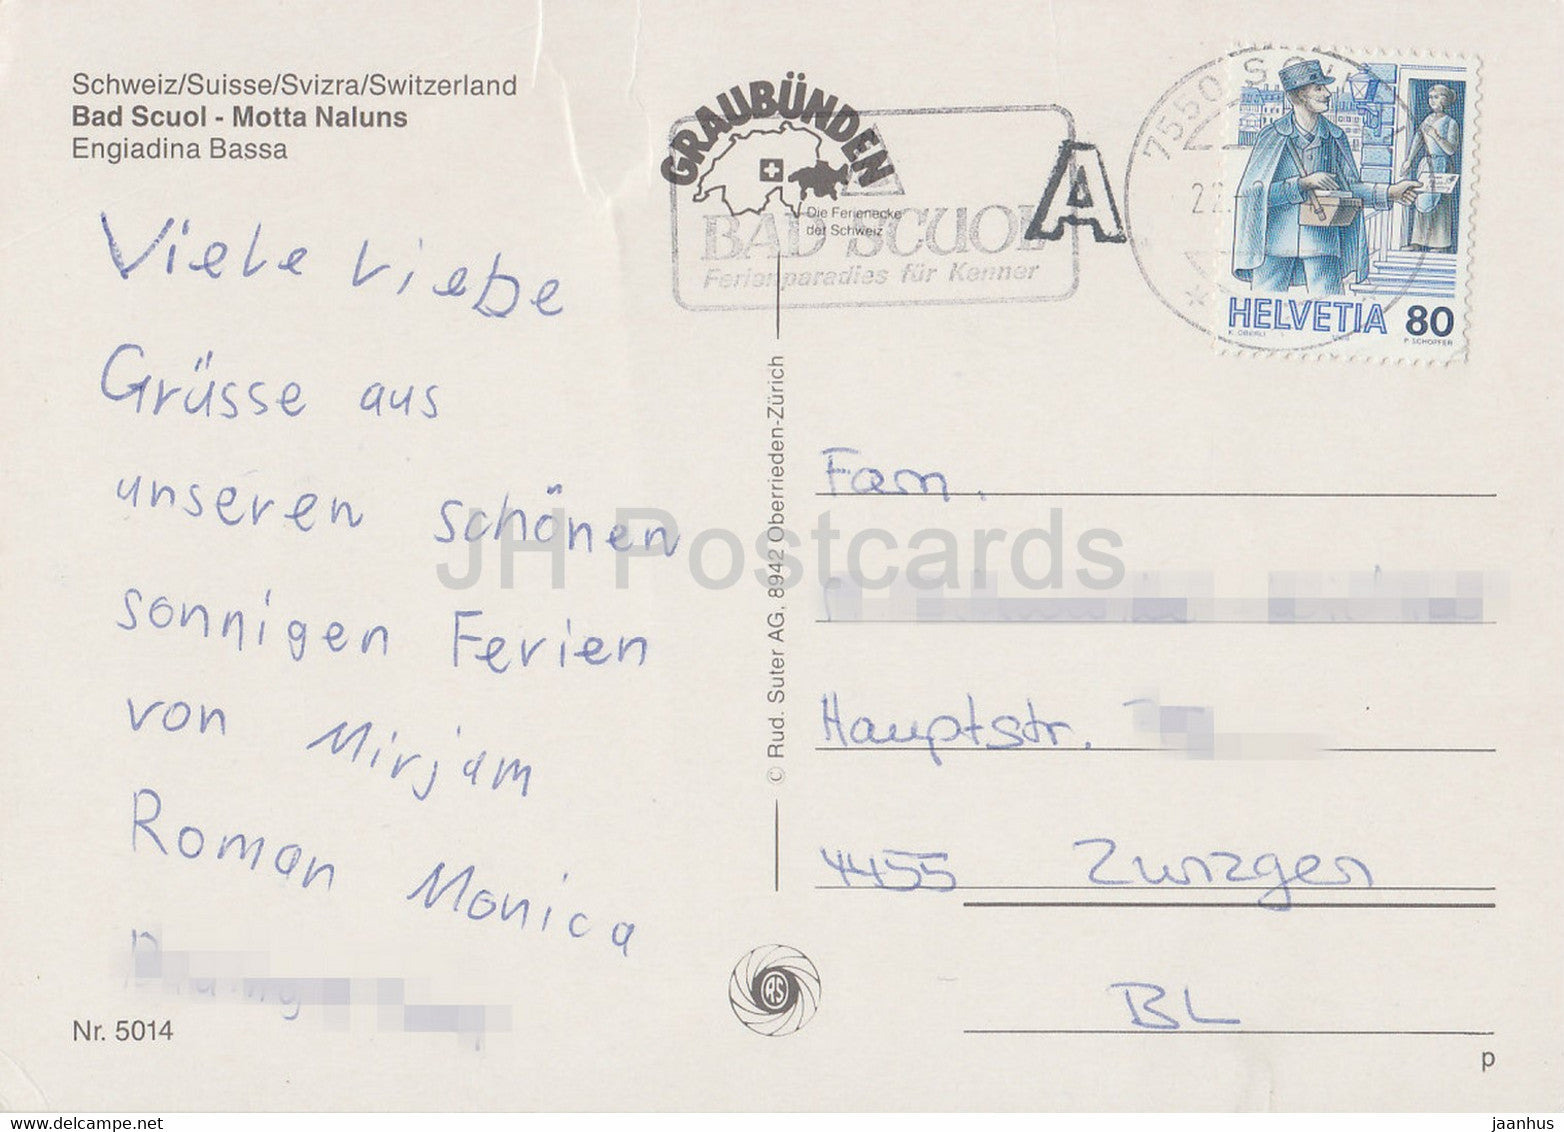 Schweiz/Suisse/Svizra/Switzerland
Bad Scuol - Motta Naluns
Engiadina Bassa
GRAUBÜNDEN
Die Ferienecke
der Schweiz
BAD SCUOL
Ferienparadies für Kenner
A
7550
22.
HELVETIA 80
K. OBERLI
P. SCHOPFER
Viele liebe
Grüsse aus
unseren schönen
sonnigen Ferien
von Mirjam
Roman Monica
Nr. 5014
© Rud. Suter AG, 8942 Oberrieden-Zürich
RS
Fam.
Hauptstr.
4455 Zunzgen
BL
p
JH Postcards
www.delcampe.net
jaanhus